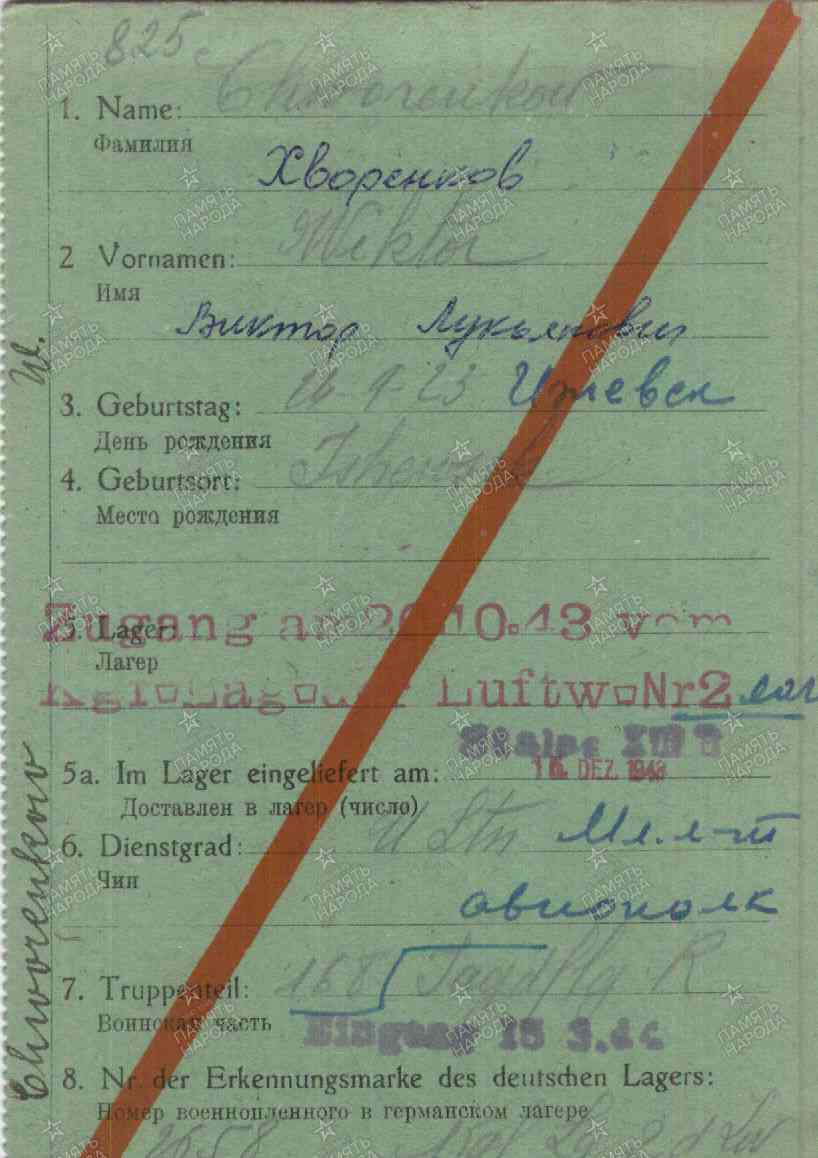 825
1. Name: Chworenkow
Фамилия
Хворенков
2 Vornamen: Wiktor
Имя
Виктор Лукьянович
3. Geburtstag: 26-9-23 Ижевск
День рождения
4. Geburtsort: Ishewsk
Место рождения
Zugang am 20.10.43 vom
5. Lager:
Лагер
Kgf.Lag.der Luftw. Nr2 лаг
Stalag XIII
5a. Im Lager eingeliefert am: 16. DEZ. 1943
Доставлен в лагер (число)
6. Dienstgrad: U Ltn Мл. л-т
Чин
авиополк
7. Truppenteil: 168 Jagdflg R
Воинская часть
Eingang 15 3.44
8. Nr. der Erkennungsmarke des deutschen Lagers:
Номер военнопленного в германском лагере
2658
Chworenkow W.
ПАМЯТЬ НАРОДА